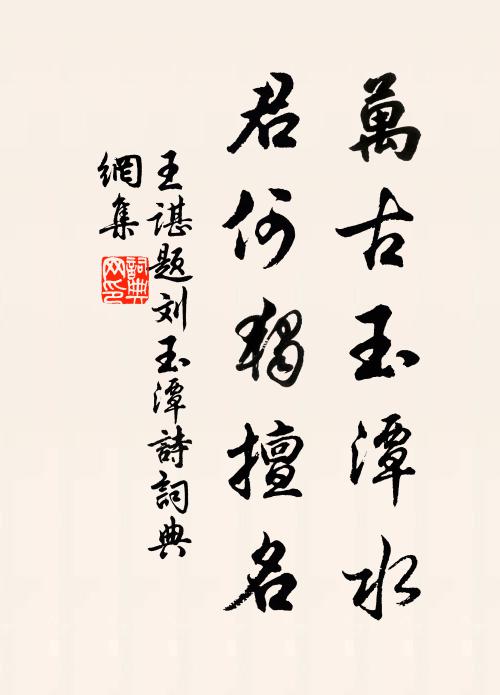 萬古玉潭水
君何獨擅名
王諶题刘玉潭詩詞典
網集
詞典
网印